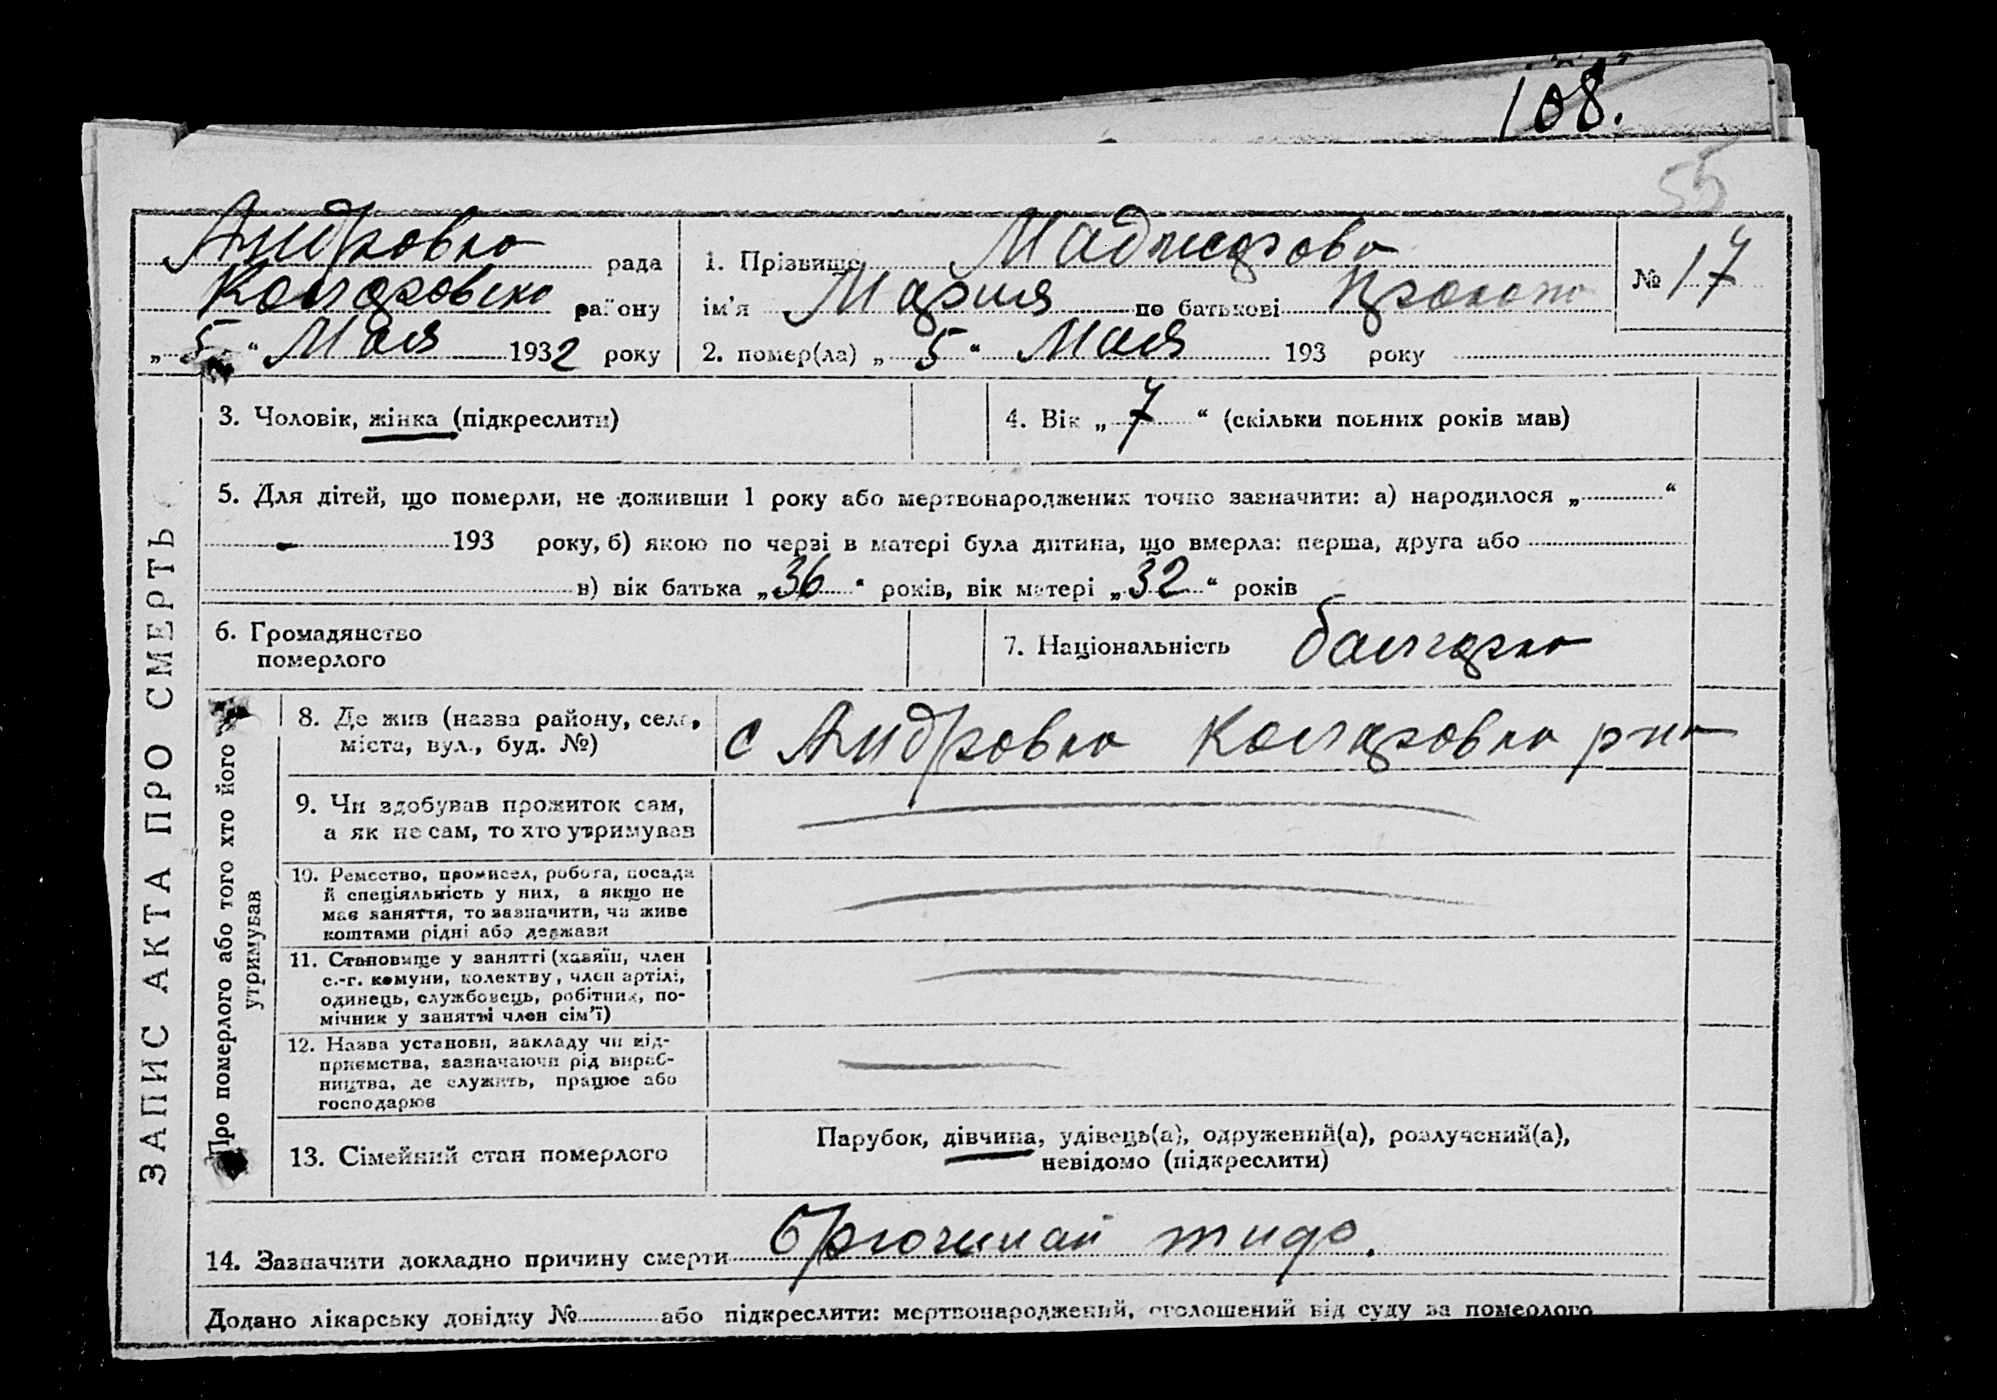 108.
55
Андровка рада
Коларовско району
„5“ Мая 1932 року
1. Прізвище Маджарова
ім’я Мария по батькові
2. помер(ла) „5“ Мая 193 року
№ 17
ЗАПИС АКТА ПРО СМЕРТЬ
3. Чоловік, жінка (підкреслити)
4. Вік „7“ (скільки повних років мав)
5. Для дітей, що померли, не доживши 1 року або мертвонароджених точно зазначити: а) народилося „ “
193 року, б) якою по черзі в матері була дитина, що вмерла: перша, друга або
в) вік батька „36“ років, вік матері „32“ років
6. Громадянство
померлого
7. Національність болгарка
Про померлого або того хто його
утримував
8. Де жив (назва району, села,
міста, вул., буд. №)
с Андровка Коларовка рна
9. Чи здобував прожиток сам,
а як не сам, то хто утримував
10. Ремество, промисел, робота, посада
й спеціяльність у них, а якщо не
має заняття, то зазначити, чи живе
коштами рідні або держави
11. Становище у занятті (хазяїн, член
с.-г. комуни, колективу, член артілі,
одинець, службовець, робітник, по-
мічник у занятті член сім’ї)
12. Назва установи, закладу чи під-
приємства, зазначаючи рід вироб-
ництва, де служить, працює або
господарює
13. Сімейний стан померлого
Парубок, дівчина, удівець(а), одружений(а), розлучений(а),
невідомо (підкреслити)
14. Зазначити докладно причину смерти Брюшной тиф.
Додано лікарську довідку № або підкреслити: мертвонароджений, оголошений від суду за померлого